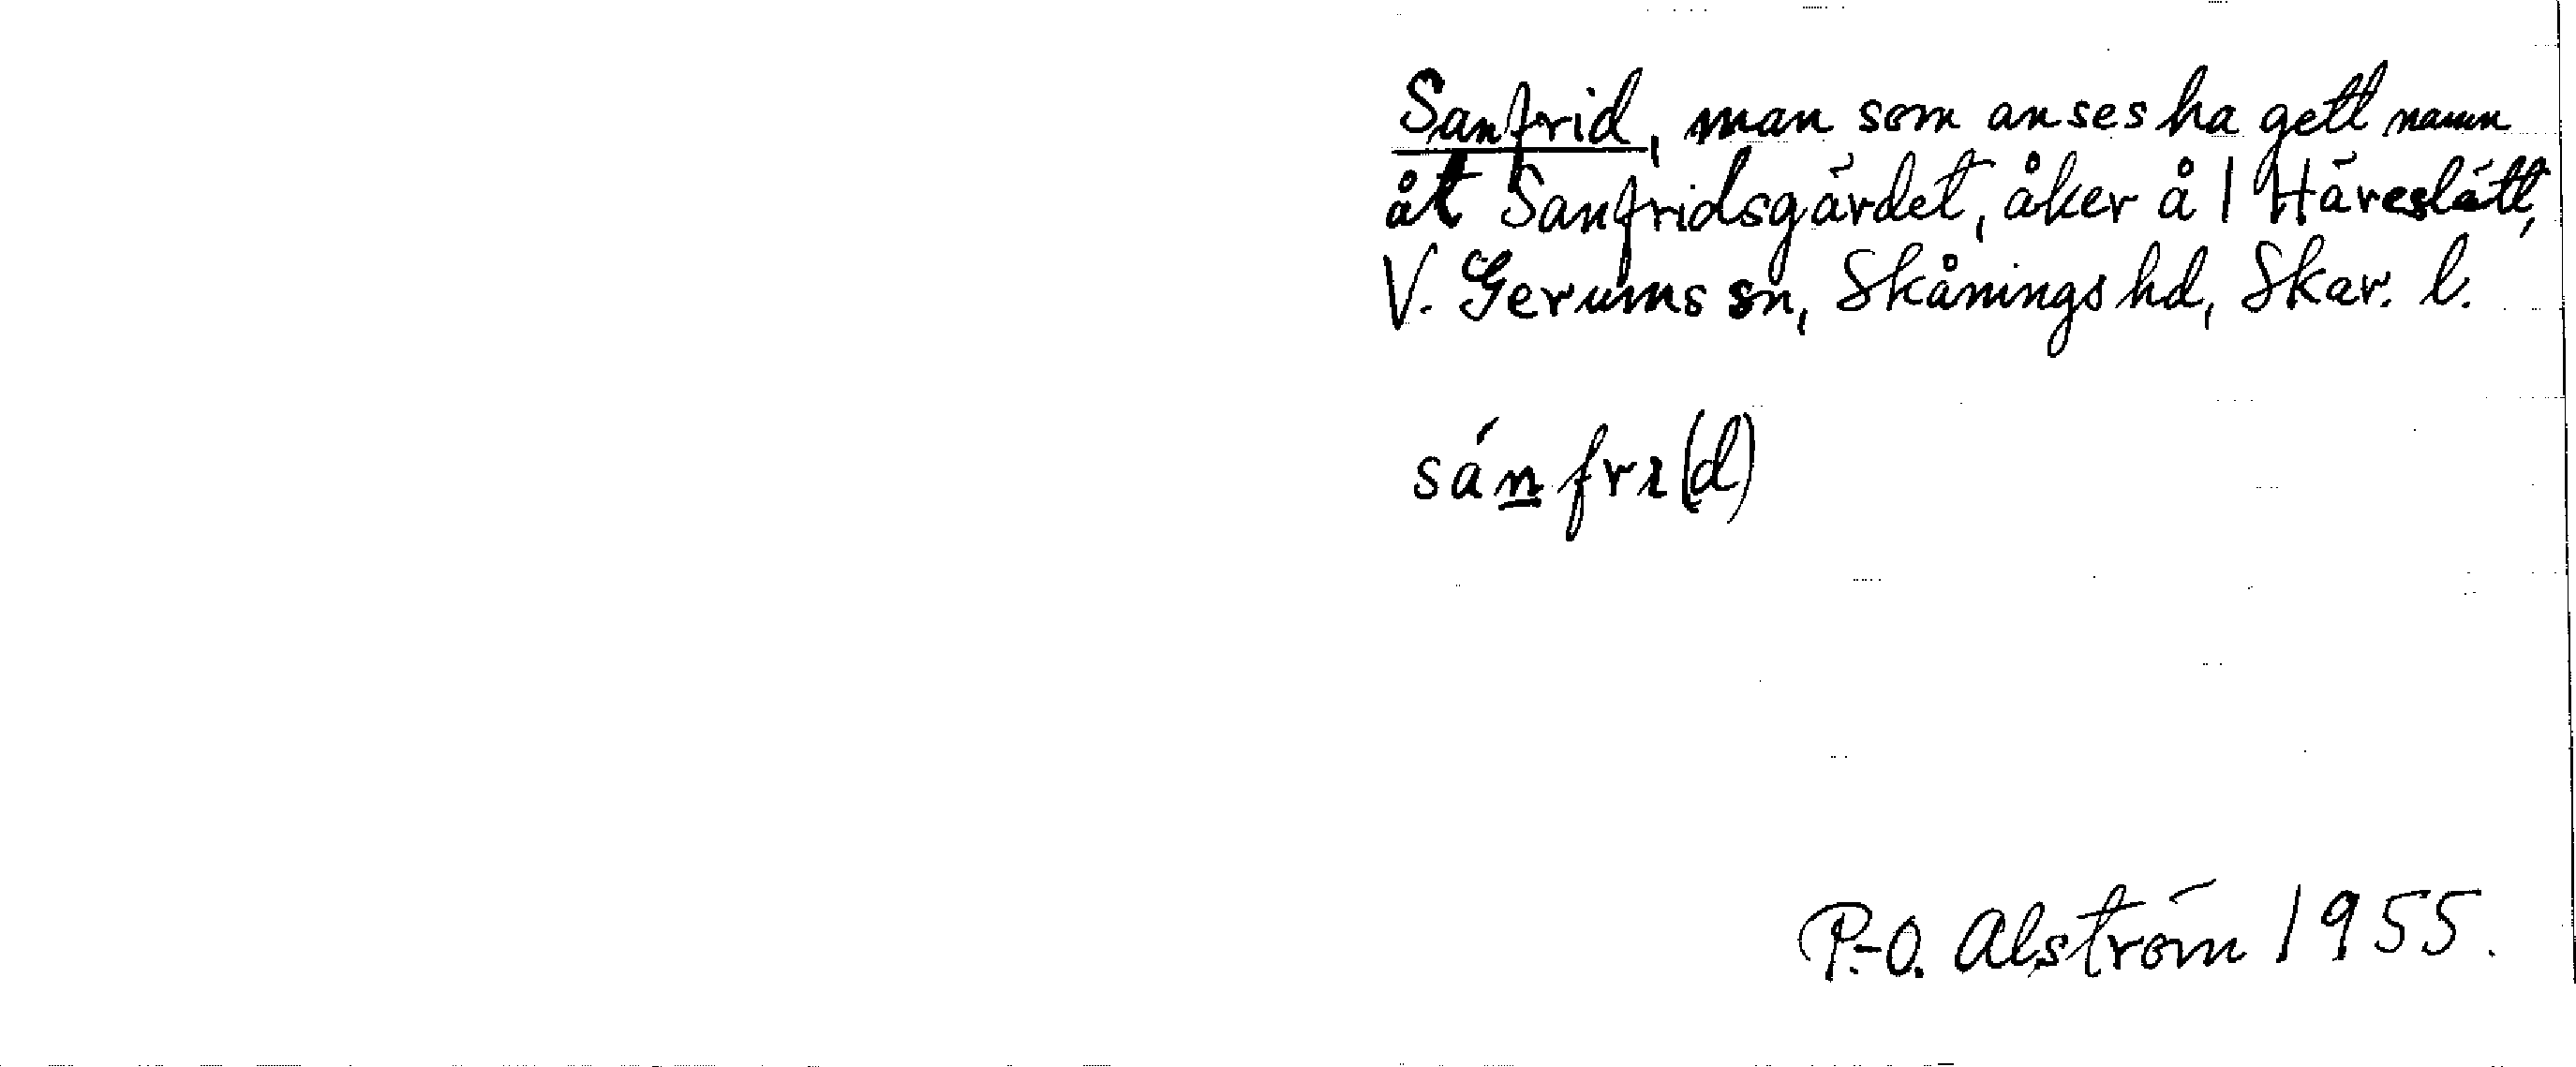 Sanfrid, man som anses ha gett namn
åt Sanfridsgärdet, åker å 1 Häreslätt,
V. Gerums sn, Skånings hd, Skar. l.
sánfrɩ(d)
P.-O. Alström 1955.